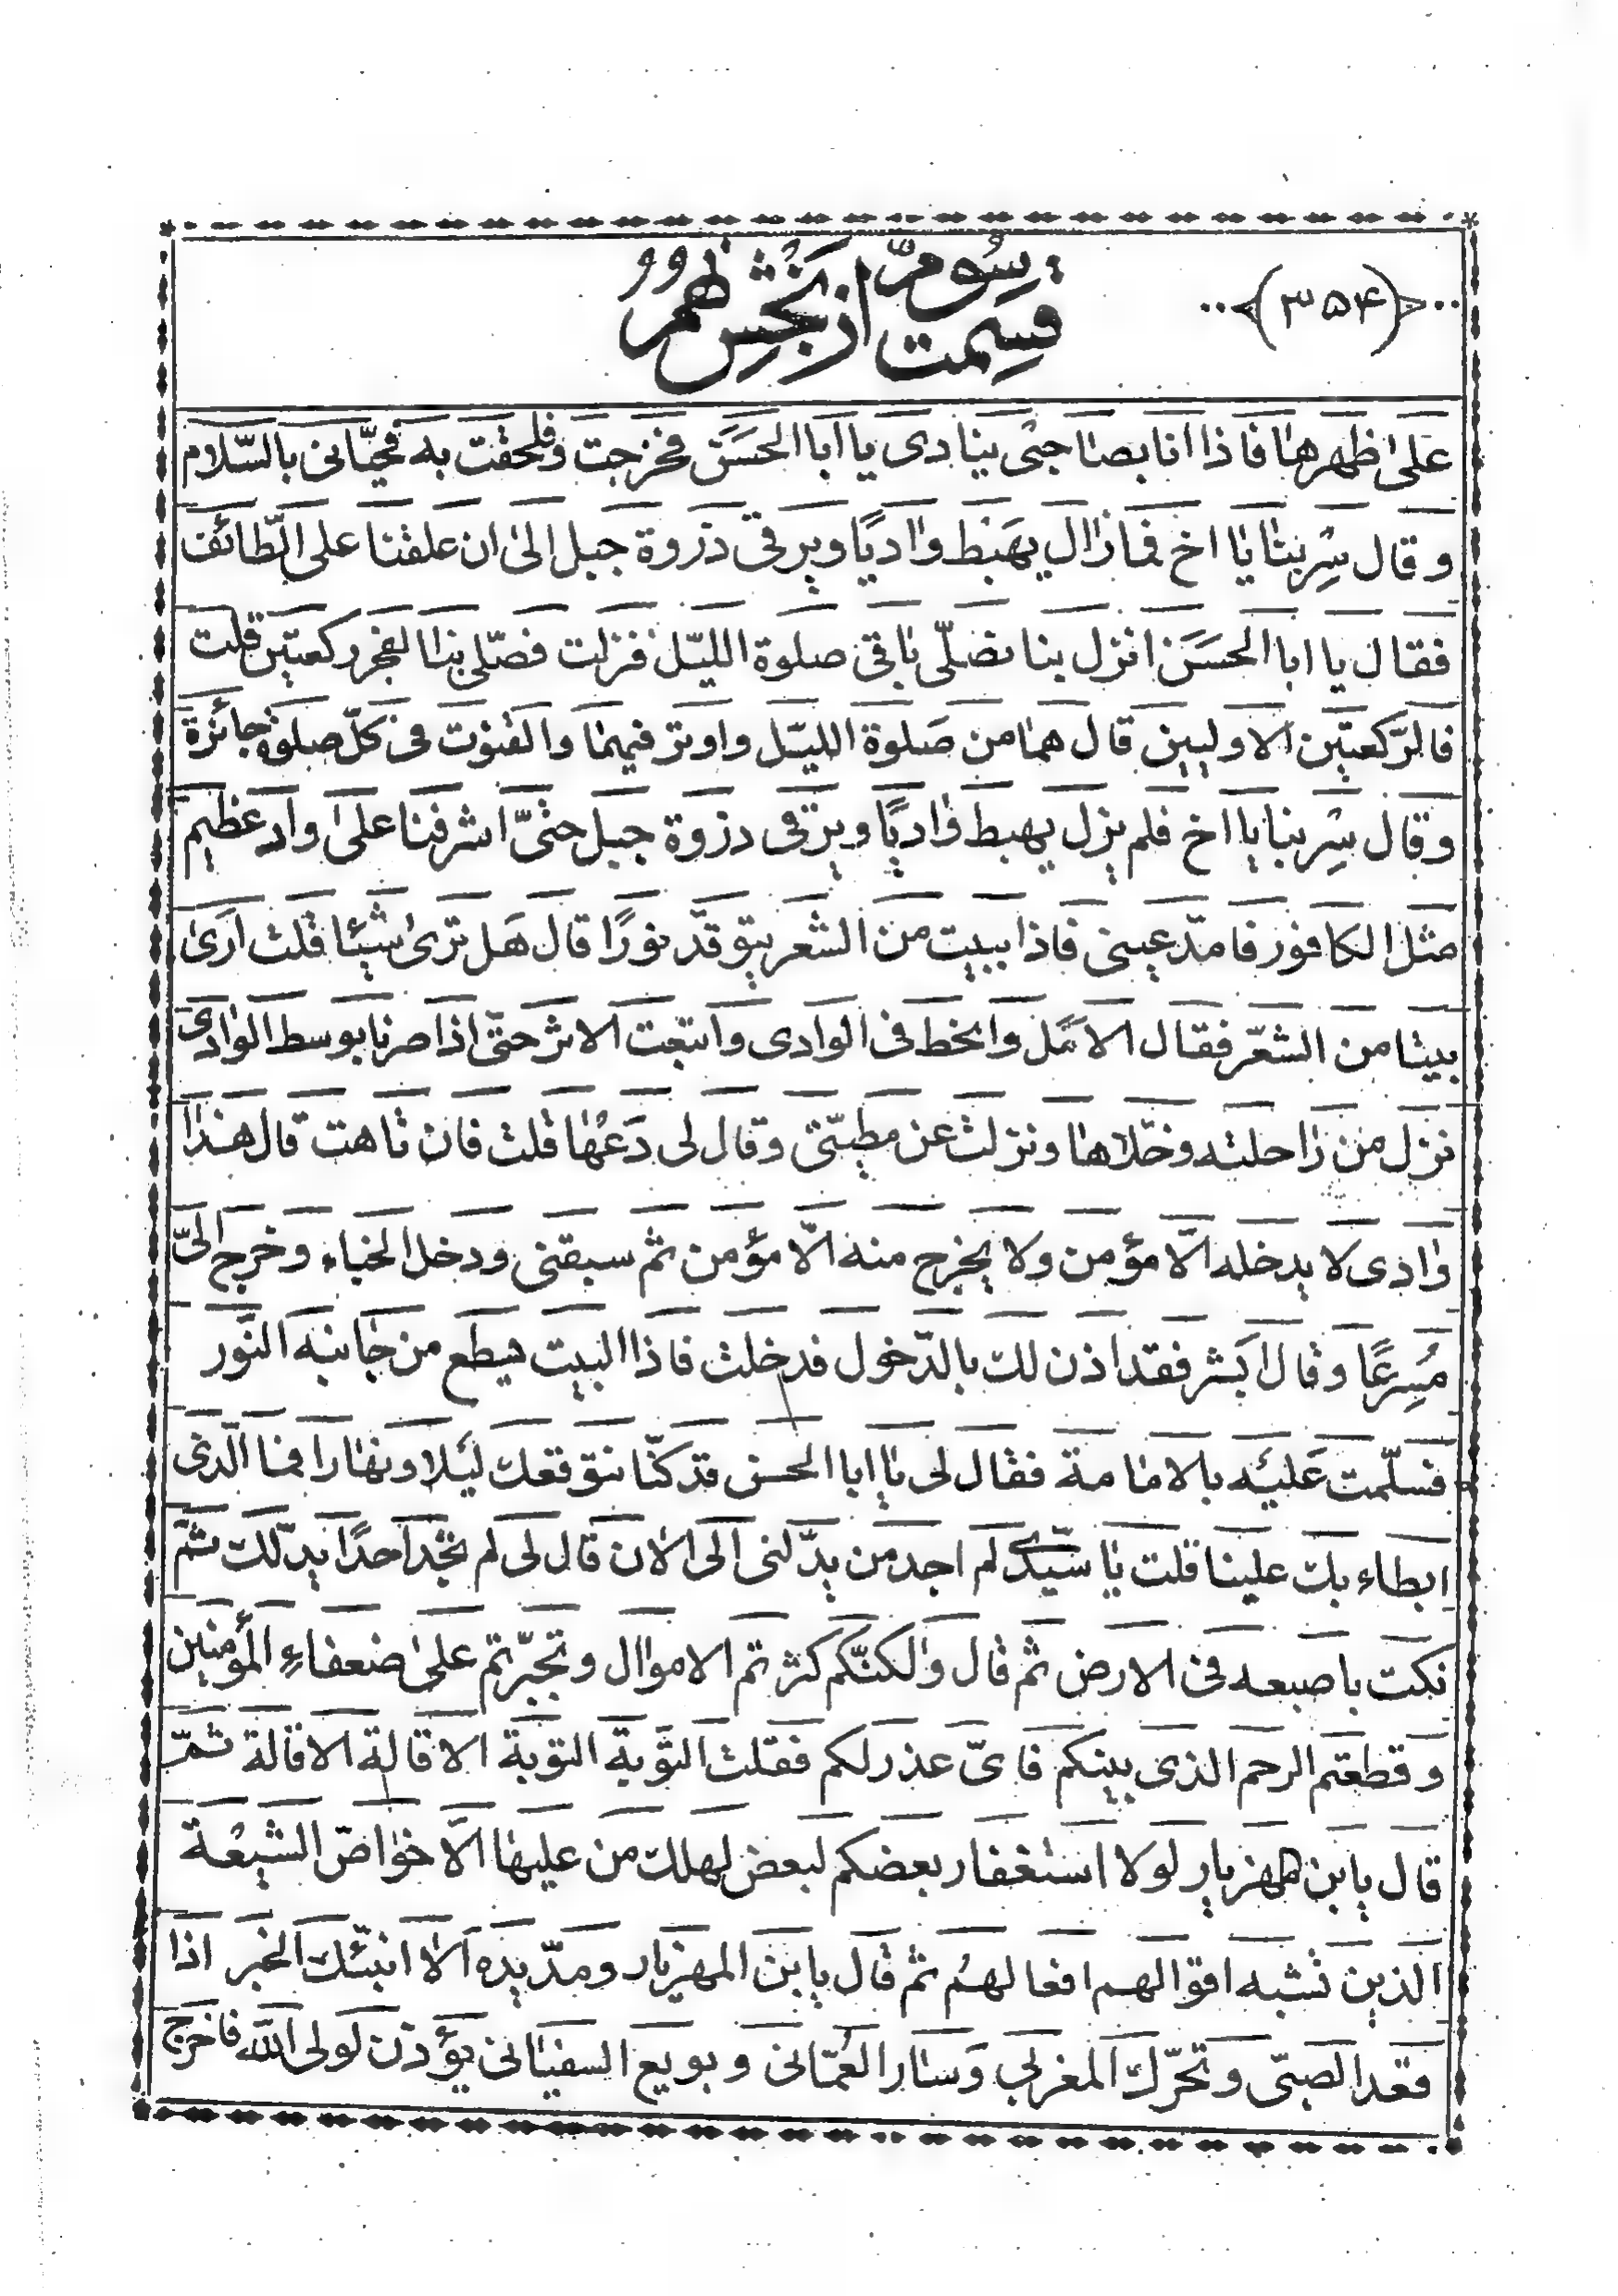 ﴿۳۵۴﴾
قسمت سوّم از بخش ظهور
على ظهرها فاذا انا بصاحبى ينادى يا ابا الحسن فخرجت و فلحقت به فحيّانى بالسّلام
و قال سِر بنا يا اخ فما زال يهبط واديًا و يرقى ذروة جبل الى ان علقنا على الطّائف
فقال يا ابا الحسَن انزل بنا نصلّى باقى صلوة الليّل فنزلت فصّلى بنا الفجر ركعتين قلت
فالرّكعتين الاوليين قال هما من صَلوة الليّل و اوتر فيهما و القنوت فى كلّ صلوة جائزة
و قال سِر بنا يا اخ فلم يزل يهبط واديًا و يرقى ذروة جبل حتىّ اشرفنا على واد عظيم
مثل الكافور فامدّ عينى فاذا ببيت من الشعر يتوقّد نورًا قال هَل ترى شيئا قلت ارَى
بيتا من الشعّر فقال الامَل و انحط فى الوادى و اتبّعت الاثر حتىّ اذا صرنا بوسط الوادى
نزل من راحلته و خلّاها و نزلت عن مطيّتى و قال لى دَعْها قلت فان تاهت قال هذا
وادى لا يدخله الّا مؤمن و لا يخرج منه الّا مؤمن ثم سبقنى و دخل الخباء و خرج الىّ
مُسرِعًا و قال ابَشر فقد اذن لك بالدّخول فدخلت فاذا البيت يسطع من جانبه النّور
فسلّمت عَليْه بالامامة فقال لى يا ابا الحسن قد كنّا نتوقعك ليَلا و نهارا فما الّذى
ابطاء بك علينا قلت يا سيّدى لم اجد من يدّلنى الى الان قال لى لم تجد احدًا يدّلك ثمّ
نكت باصبعه فى الارض ثم قال و لكنّكم كثرتم الاموال و تجبّرتم على ضعفاءِ المؤمنين
و قطعتم الرحم الذى بينكم فاىّ عذر لكم فقلت التّوبة التوبة الاقالة الاقالة ثمّ
قال يابن مهزيار لولا استغفار بعضكم لبعض لهلك من عليها الّا خواصّ الشيعة
الذين تشبه اقوالهم افعالهم ثم قال يابن المهزيار و مدّ يده الا انبئّك الخبر اذا
فقد الصبّى و تحرّك المغربى و سار العُمّانى و بويع السفيانى يؤذن لولى الله فاخرج